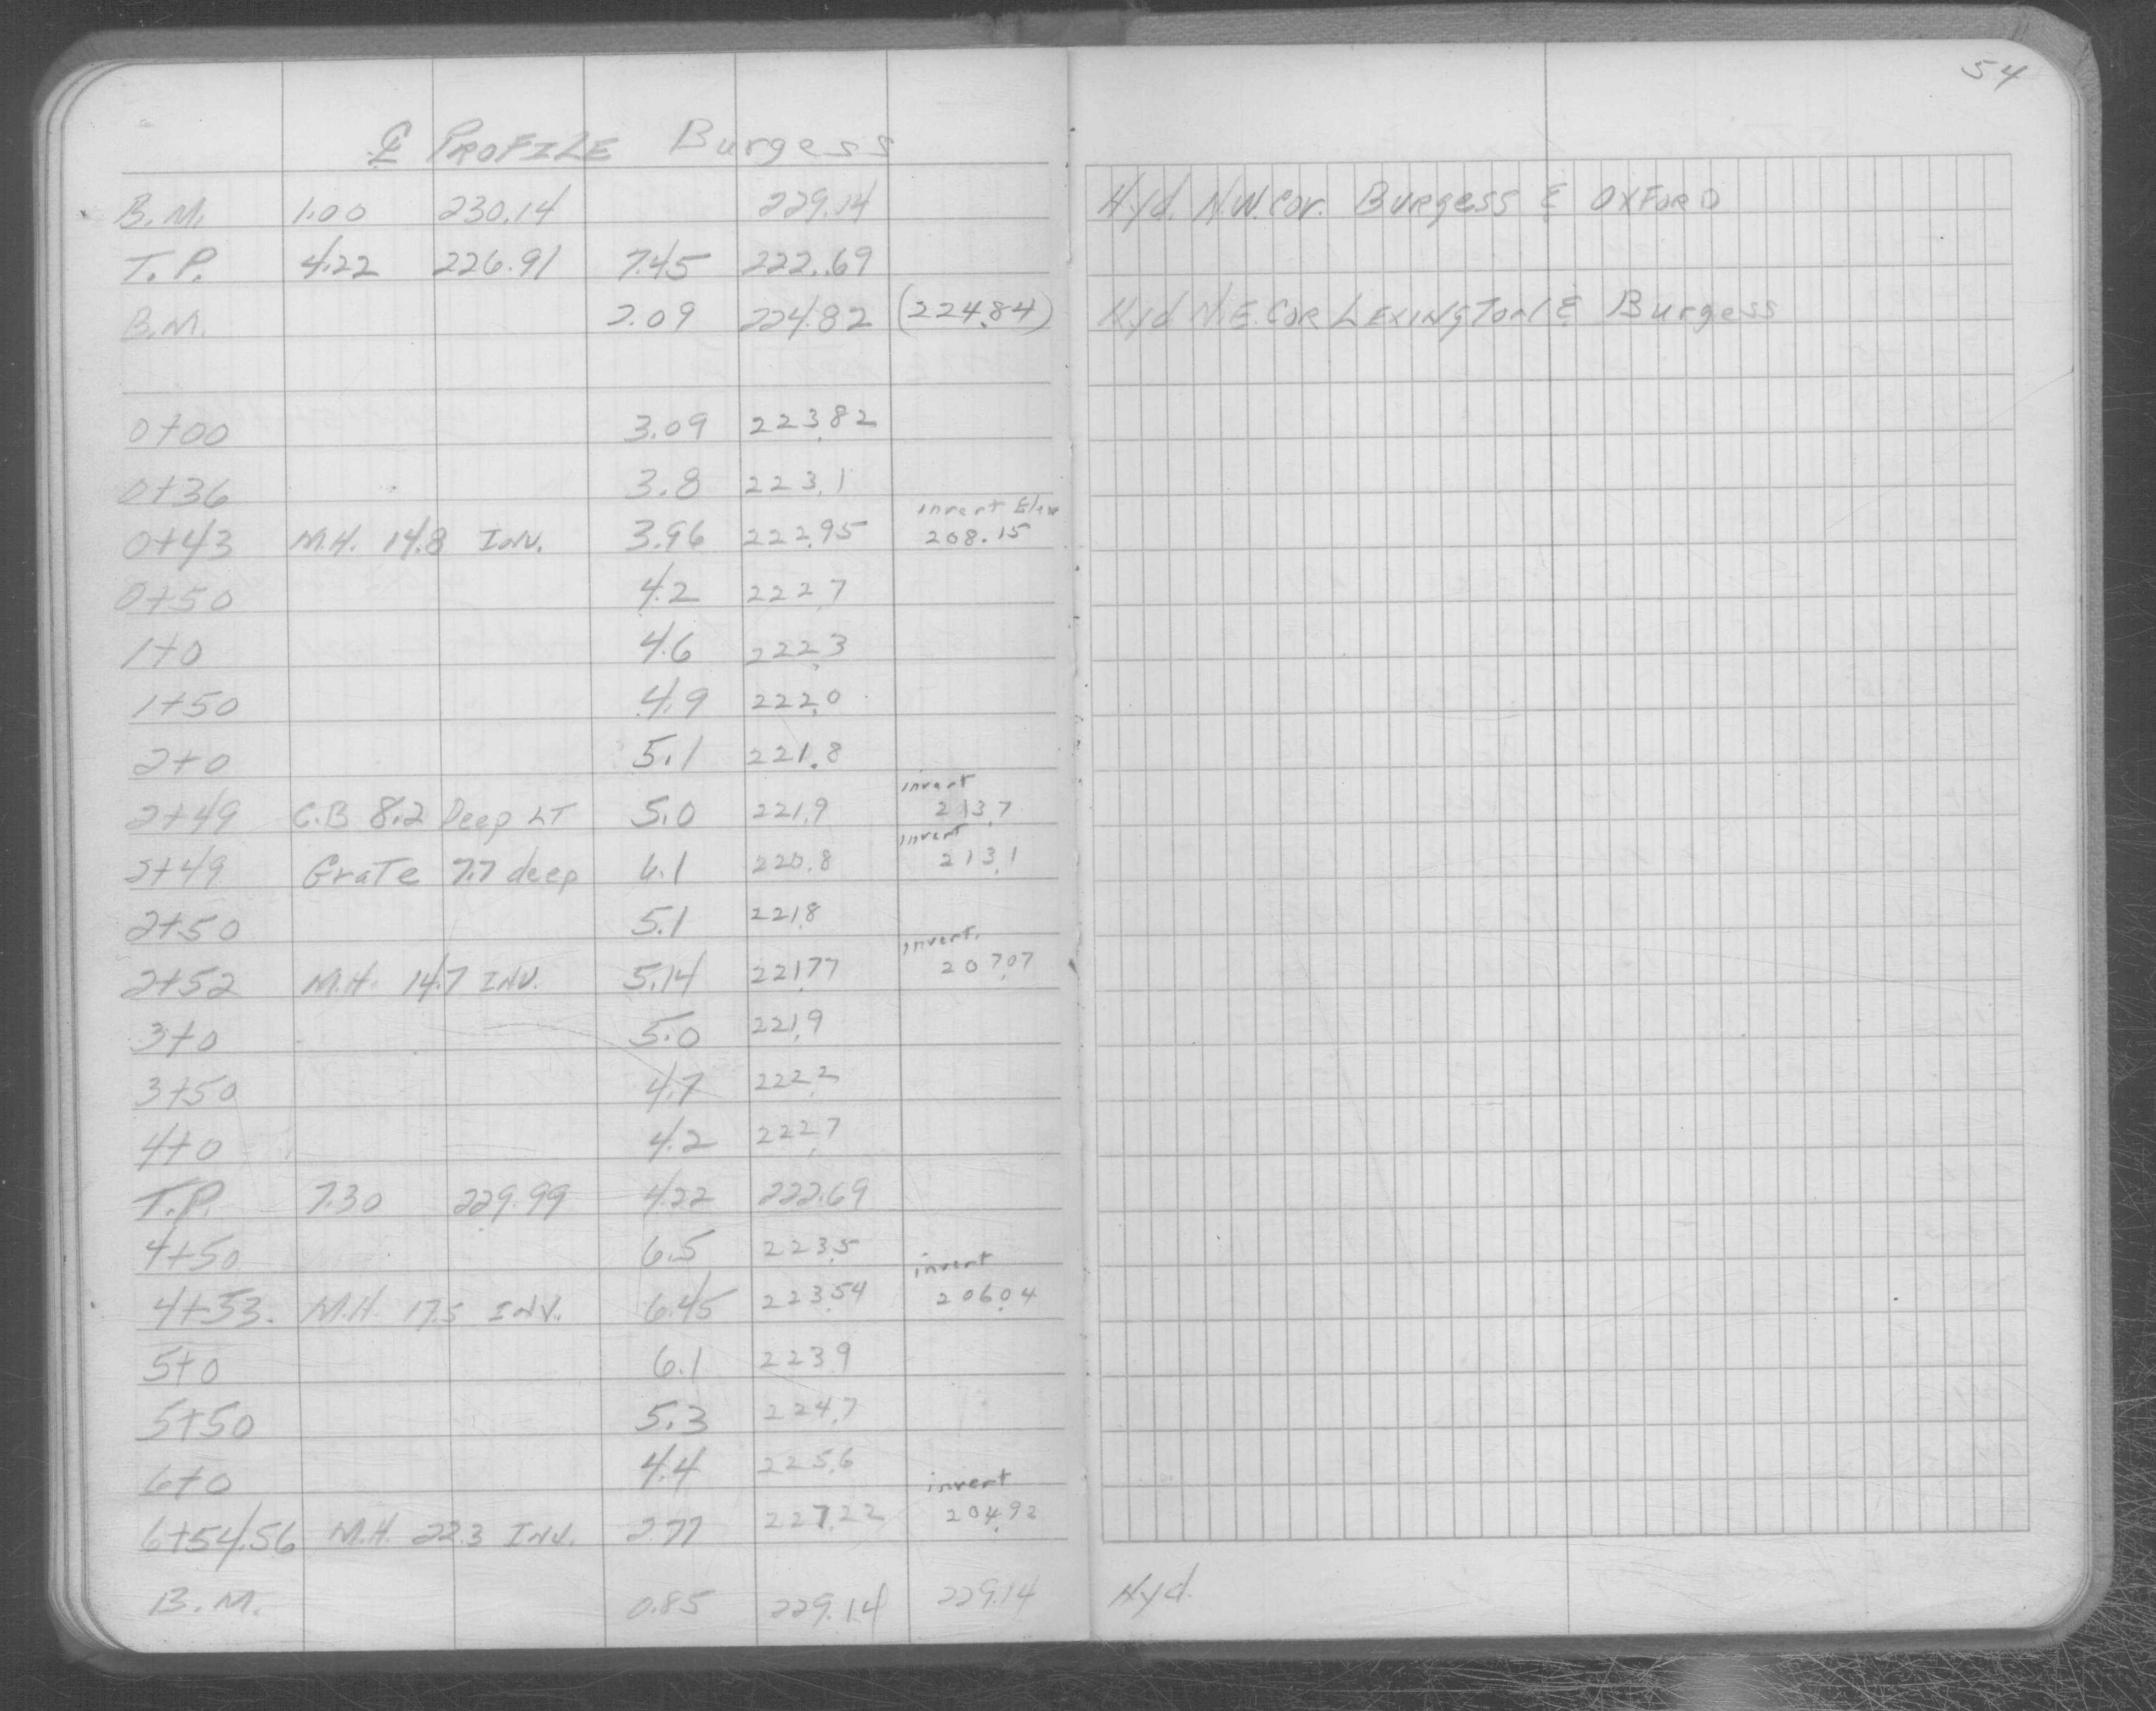 54
℄ PROFILE Burgess
B.M. 1.00 230.14 229.14 Hyd. N.W. Cor. Burgess & Oxford
T.P. 4.22 226.91 7.45 222.69
B.M. 2.09 224.82 (224.84) Hyd N.E. Cor Lexington & Burgess
0+00 3.09 223.82
0+36 3.8 223.1
invert Elev
0+43 M.H. 14.8 INV. 3.96 222.95 208.15
0+50 4.2 222.7
1+0 4.6 222.3
1+50 4.9 222.0
2+0 5.1 221.8
invert
2+49 C.B 8.2 Deep LT 5.0 221.9 213.7
invert
2+49 Grate 7.7 deep 6.1 220.8 213.1
2+50 5.1 221.8
invert.
2+52 M.H. 14.7 INV. 5.14 221.77 207.07
3+0 5.0 221.9
3+50 4.7 222.2
4+0 4.2 222.7
T.P. 7.30 229.99 4.22 222.69
4+50 6.5 223.5
invert
4+53. M.H. 17.5 INV. 6.45 223.54 206.04
5+0 6.1 223.9
5+50 5.3 224.7
6+0 4.4 225.6
invert
6+54.56 M.H. 22.3 INV. 2.77 227.22 204.92
B.M. 0.85 229.14 229.14 Hyd.